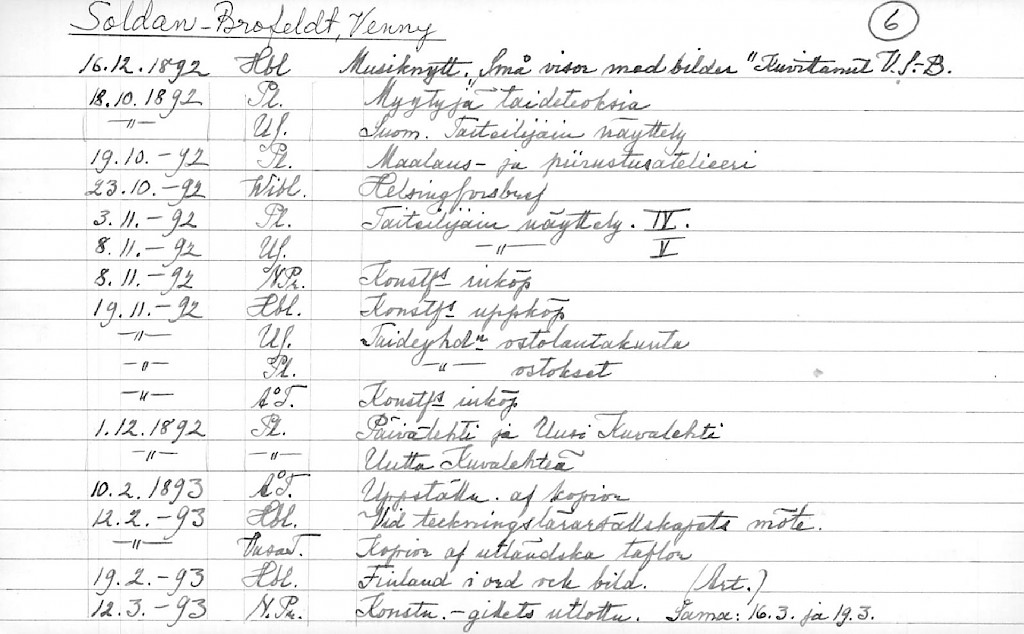 Soldan-Brofeldt, Venny 6
16.12.1892 Hbl Musiknytt. „Små visor med bilder" Kuvittanut V.S.-B.
18.10.1892 Pl. Myytyjä taideteoksia
—〃— Uf. Suom. Taiteilijain näyttely
19.10.-92 Pl. Maalaus- ja piirustusatelieeri
23.10.-92 Wibl. Helsingforsbref
3.11.-92 Pl. Taiteilijain näyttely. IV.
8.11.-92 Uf. —〃— V
8.11.-92 N.Pr. Konstfs inköp
19.11.-92 Hbl. Konstfs uppköp
—〃— Uf. Taideyhdn ostolautakunta
—〃— Pl. —〃— ostokset
—〃— Å.T. Konstfs inköp
1.12.1892 Pl. Päivälehti ja Uusi Kuvalehti
—〃— —〃— Uutta Kuvalehteä
10.2.1893 Å.T. Uppställn. af kopior
12.2.-93 Hbl. Vid teckningslärarsällskapets möte.
—〃— VasaT. Kopior af utländska taflor
19.2.-93 Hbl. Finland i ord och bild. (Art.)
12.3.-93 N.Pr. Konstn.-gillets utlottn. Sama: 16.3. ja 19.3.